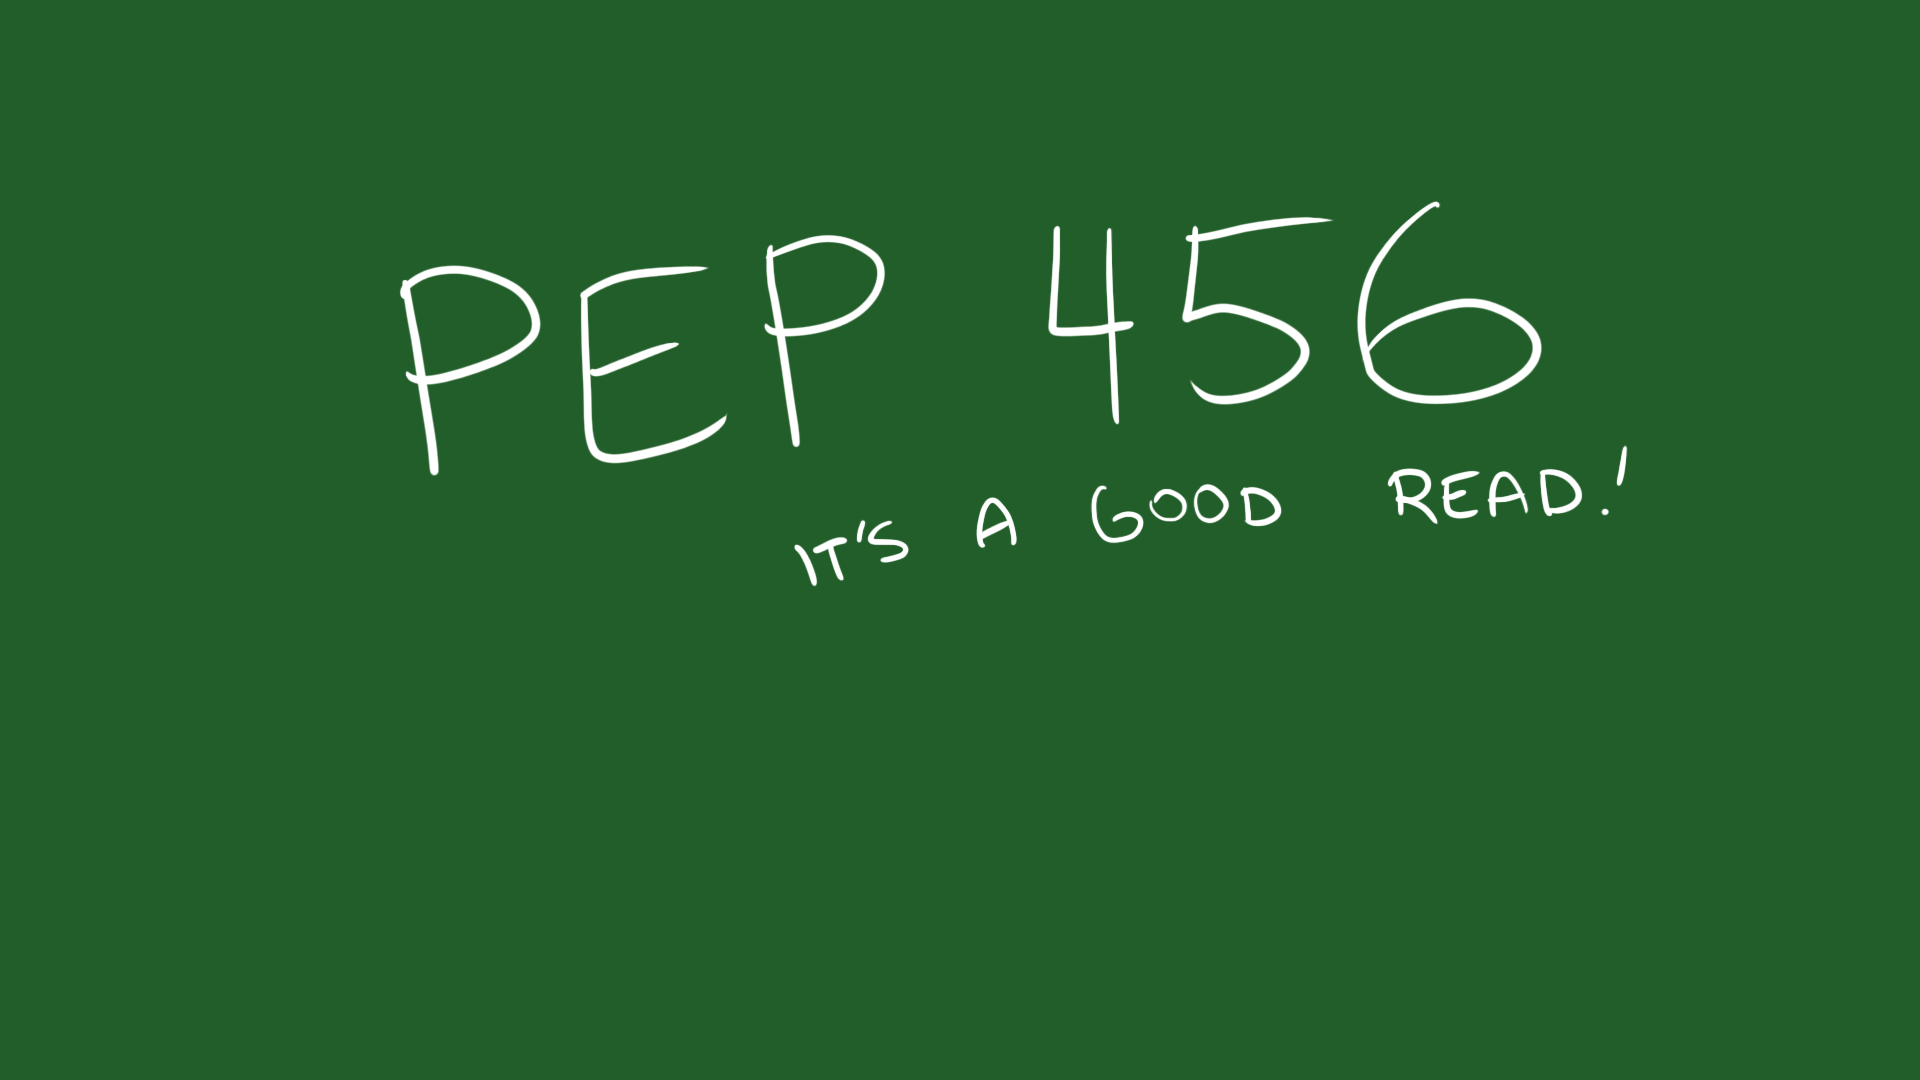 PEP 456
IT'S A GOOD READ!